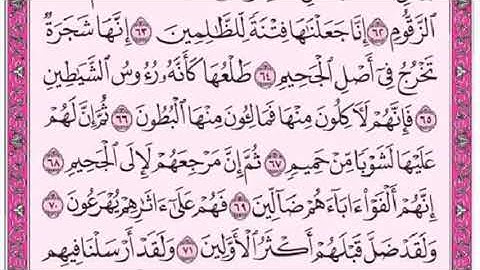 الزَّقُّومِ ٦٢ إِنَّا جَعَلْنَٰهَا فِتْنَةً لِّلظَّٰلِمِينَ ٦٣ إِنَّهَا شَجَرَةٌ
تَخْرُجُ فِىٓ أَصْلِ الْجَحِيمِ ٦٤ طَلْعُهَا كَأَنَّهُۥ رُءُوسُ الشَّيَٰطِينِ
٦٥ فَإِنَّهُمْ لَءَاكِلُونَ مِنْهَا فَمَالِـُٔونَ مِنْهَا الْبُطُونَ ٦٦ ثُمَّ إِنَّ لَهُمْ
عَلَيْهَا لَشَوْبًا مِّنْ حَمِيمٍ ٦٧ ثُمَّ إِنَّ مَرْجِعَهُمْ لَإِلَى الْجَحِيمِ ٦٨
إِنَّهُمْ أَلْفَوْا۟ ءَابَآءَهُمْ ضَآلِّينَ ٦٩ فَهُمْ عَلَىٰٓ ءَاثَٰرِهِمْ يُهْرَعُونَ ٧٠
وَلَقَدْ ضَلَّ قَبْلَهُمْ أَكْثَرُ الْأَوَّلِينَ ٧١ وَلَقَدْ أَرْسَلْنَا فِيهِم